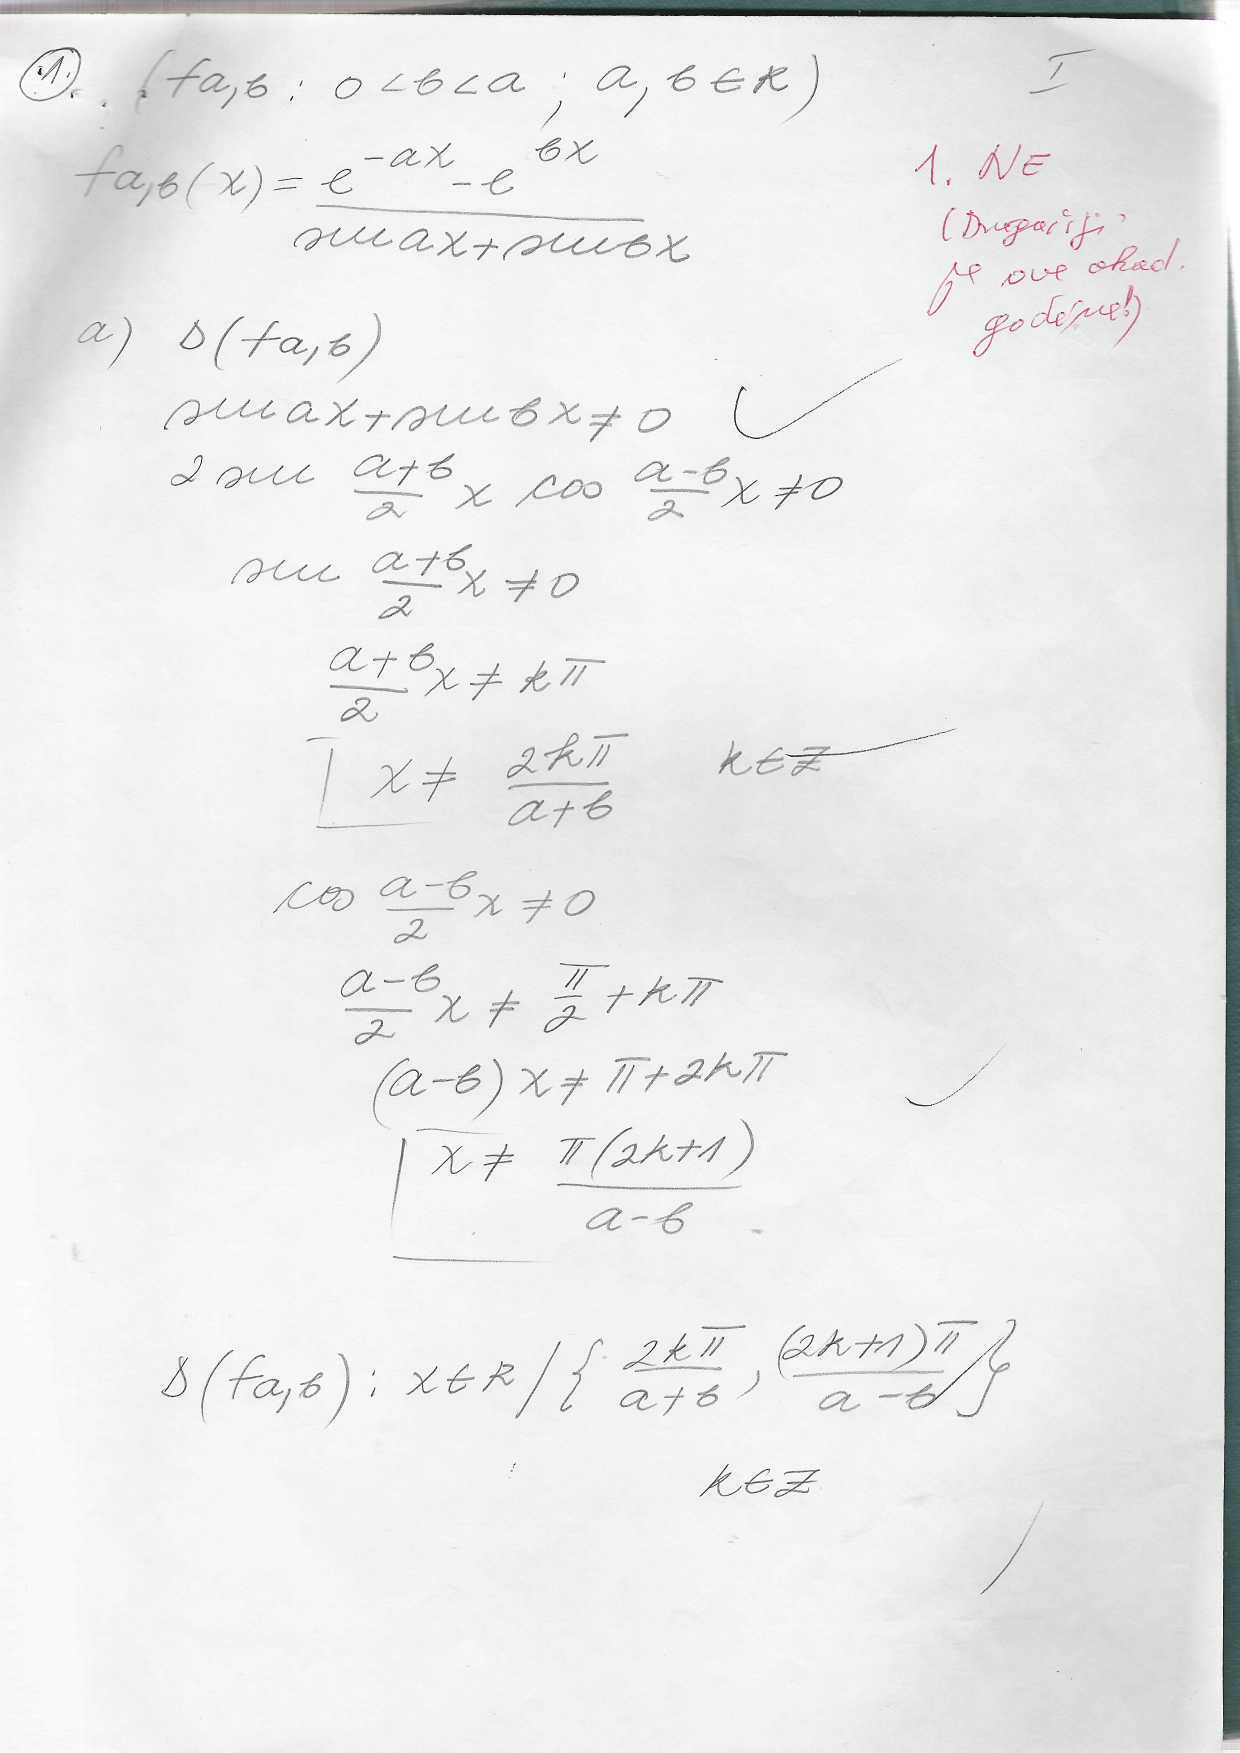 1. (fa,b : 0<b<a ; a, b ∈ R)
I
fa,b(x) = (e^(-ax) - e^(bx)) / (sin ax + sin bx)
1. NE
(Drugačiji
je ove akad.
godine!)
a) D(fa,b)
sin ax + sin bx ≠ 0 ✓
2 sin (a+b)/2 x cos (a-b)/2 x ≠ 0
sin (a+b)/2 x ≠ 0
(a+b)/2 x ≠ kπ
x ≠ 2kπ/(a+b) k∈Z
cos (a-b)/2 x ≠ 0
(a-b)/2 x ≠ π/2 + kπ
(a-b) x ≠ π + 2kπ ✓
x ≠ π(2k+1)/(a-b)
D(fa,b) : x∈R / { 2kπ/(a+b), (2k+1)π/(a-b) }
k∈Z